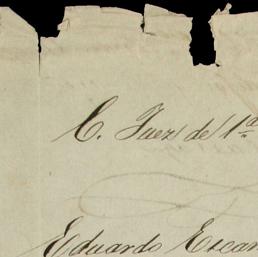 C. Juez de 1.ª
Eduardo Escan